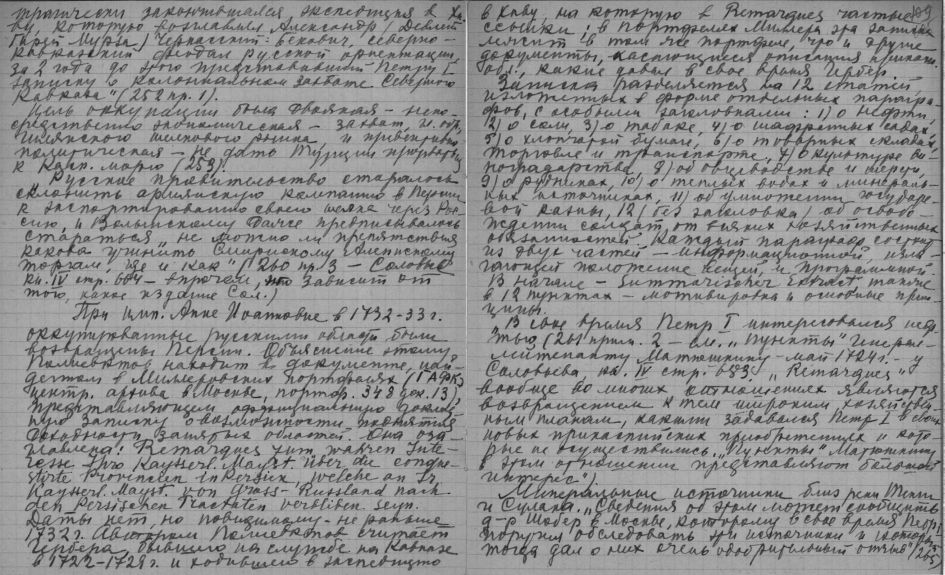 трагически закончившаяся экспедиция в Хи-
ву, которую возглавлял Александр Бекович
Черкасский феодал русской ориентации
за 2 года до этого представивший Петру I
записку о колониальном захвате Северного
Кавказа" (252 пр. 1).
Цель оккупации была двоякая - непо-
средственно экономическая - захват и
шелкового рынка и
политическая - не дать Турции прорваться
к Касп. морю (253).
Русское правительство старалось
склонить армянскую компанию в Персии
к экспортированию своего шелка через Рос-
сию, и Волынскому далее предписывалось
стараться "не можно ли препятствия
какова учинить Смирнскому и Алепскому
торгам, где и как" (260 пр. 3 - Соловьев
кн. IV стр. 684 - впрочем, зависит от
того, какое издание Сол.)
При имп. Анне Иоанновне в 1732-33 г.
оккупированные русскими области были
возвращены Персии. Объяснение этому
Полиевктов находит в документе, най-
денном в Миллеровских портфелях (ГАФКЭ
центр. архива в Москве, портф. 348 док. 13)
представляющем официальную доклад-
ную записку о возможности поднятия
доходности занятых областей. Она оза-
главлена: Remarques zum wahren Inte-
resse Ihro Kayserl. Mayst. über die conque-
tirte Provincien in Persien, welche an Ir
Kayserl. Mayst. von Gross-Russland nach
den Persischen Tractaten verbliben seyn.
Даты нет, но повидимому - не раньше
1732 г. Автором Полиевктов считает
Гербера, бывшего на службе на Кавказе
в 1722-1729 г. и ходившего в экспедицию
89
в Хиву, на которую в Remarques частые
ссылки, в портфелях Миллера эта записка
лежит в том же портфеле, что и другие
документы, касающиеся описания прикасп.
обл., какие давал в свое время Гербер.
Записка разделяется на 12 статей
изложенных в форме отдельных парагра-
фов, с особыми заголовками: 1) о нефти,
2) о соли, 3) о табаке, 4) о шафранных садах,
5) о хлопчатой бумаге, 6) о товарных складах,
торговле и транспорте, 7) о культуре ви-
ноградарства, 8) об овцеводстве и шерсти,
9) о рудниках, 10) о теплых водах и минераль-
ных источниках, 11) об умножении государе-
вой казны, 12) (без заголовка) об освобо-
ждении солдат от всяких хозяйственных
обязанностей. Каждый параграф состоит
из двух частей - информационной, изла-
гающей положение вещей, и программной
В начале - Summarischer Extract, также
в 12 пунктах - мотивировка и основные прин-
ципы.
"В свое время Петр I интересовался неф-
тью (261 прим. 2 - см. "Пункты" Генерал-
лейтенанту Матюшкину - май 1724 г. - у
Соловьева кн. IV стр. 683. "Remarques"
вообще во многих отношениях являются
возвращением к тем широким хозяйствен-
ным планам, какими задавался Петр I в своих
новых прикаспийских приобретениях и кото-
рые не осуществились. "Пункты" Матюшкину
в этом отношении представляют большой
интерес"
Минеральные источники близ реки Терки
и Сулака. "Сведения об этом может сообщить
д-р Шобер в Москве, которому в свое время Петр
поручил обследовать эти источники и который
тогда дал о них очень одобрительный отзыв" (265)